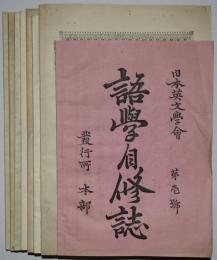 日本英文學會
第壱號
語學自修誌
發行所 本部